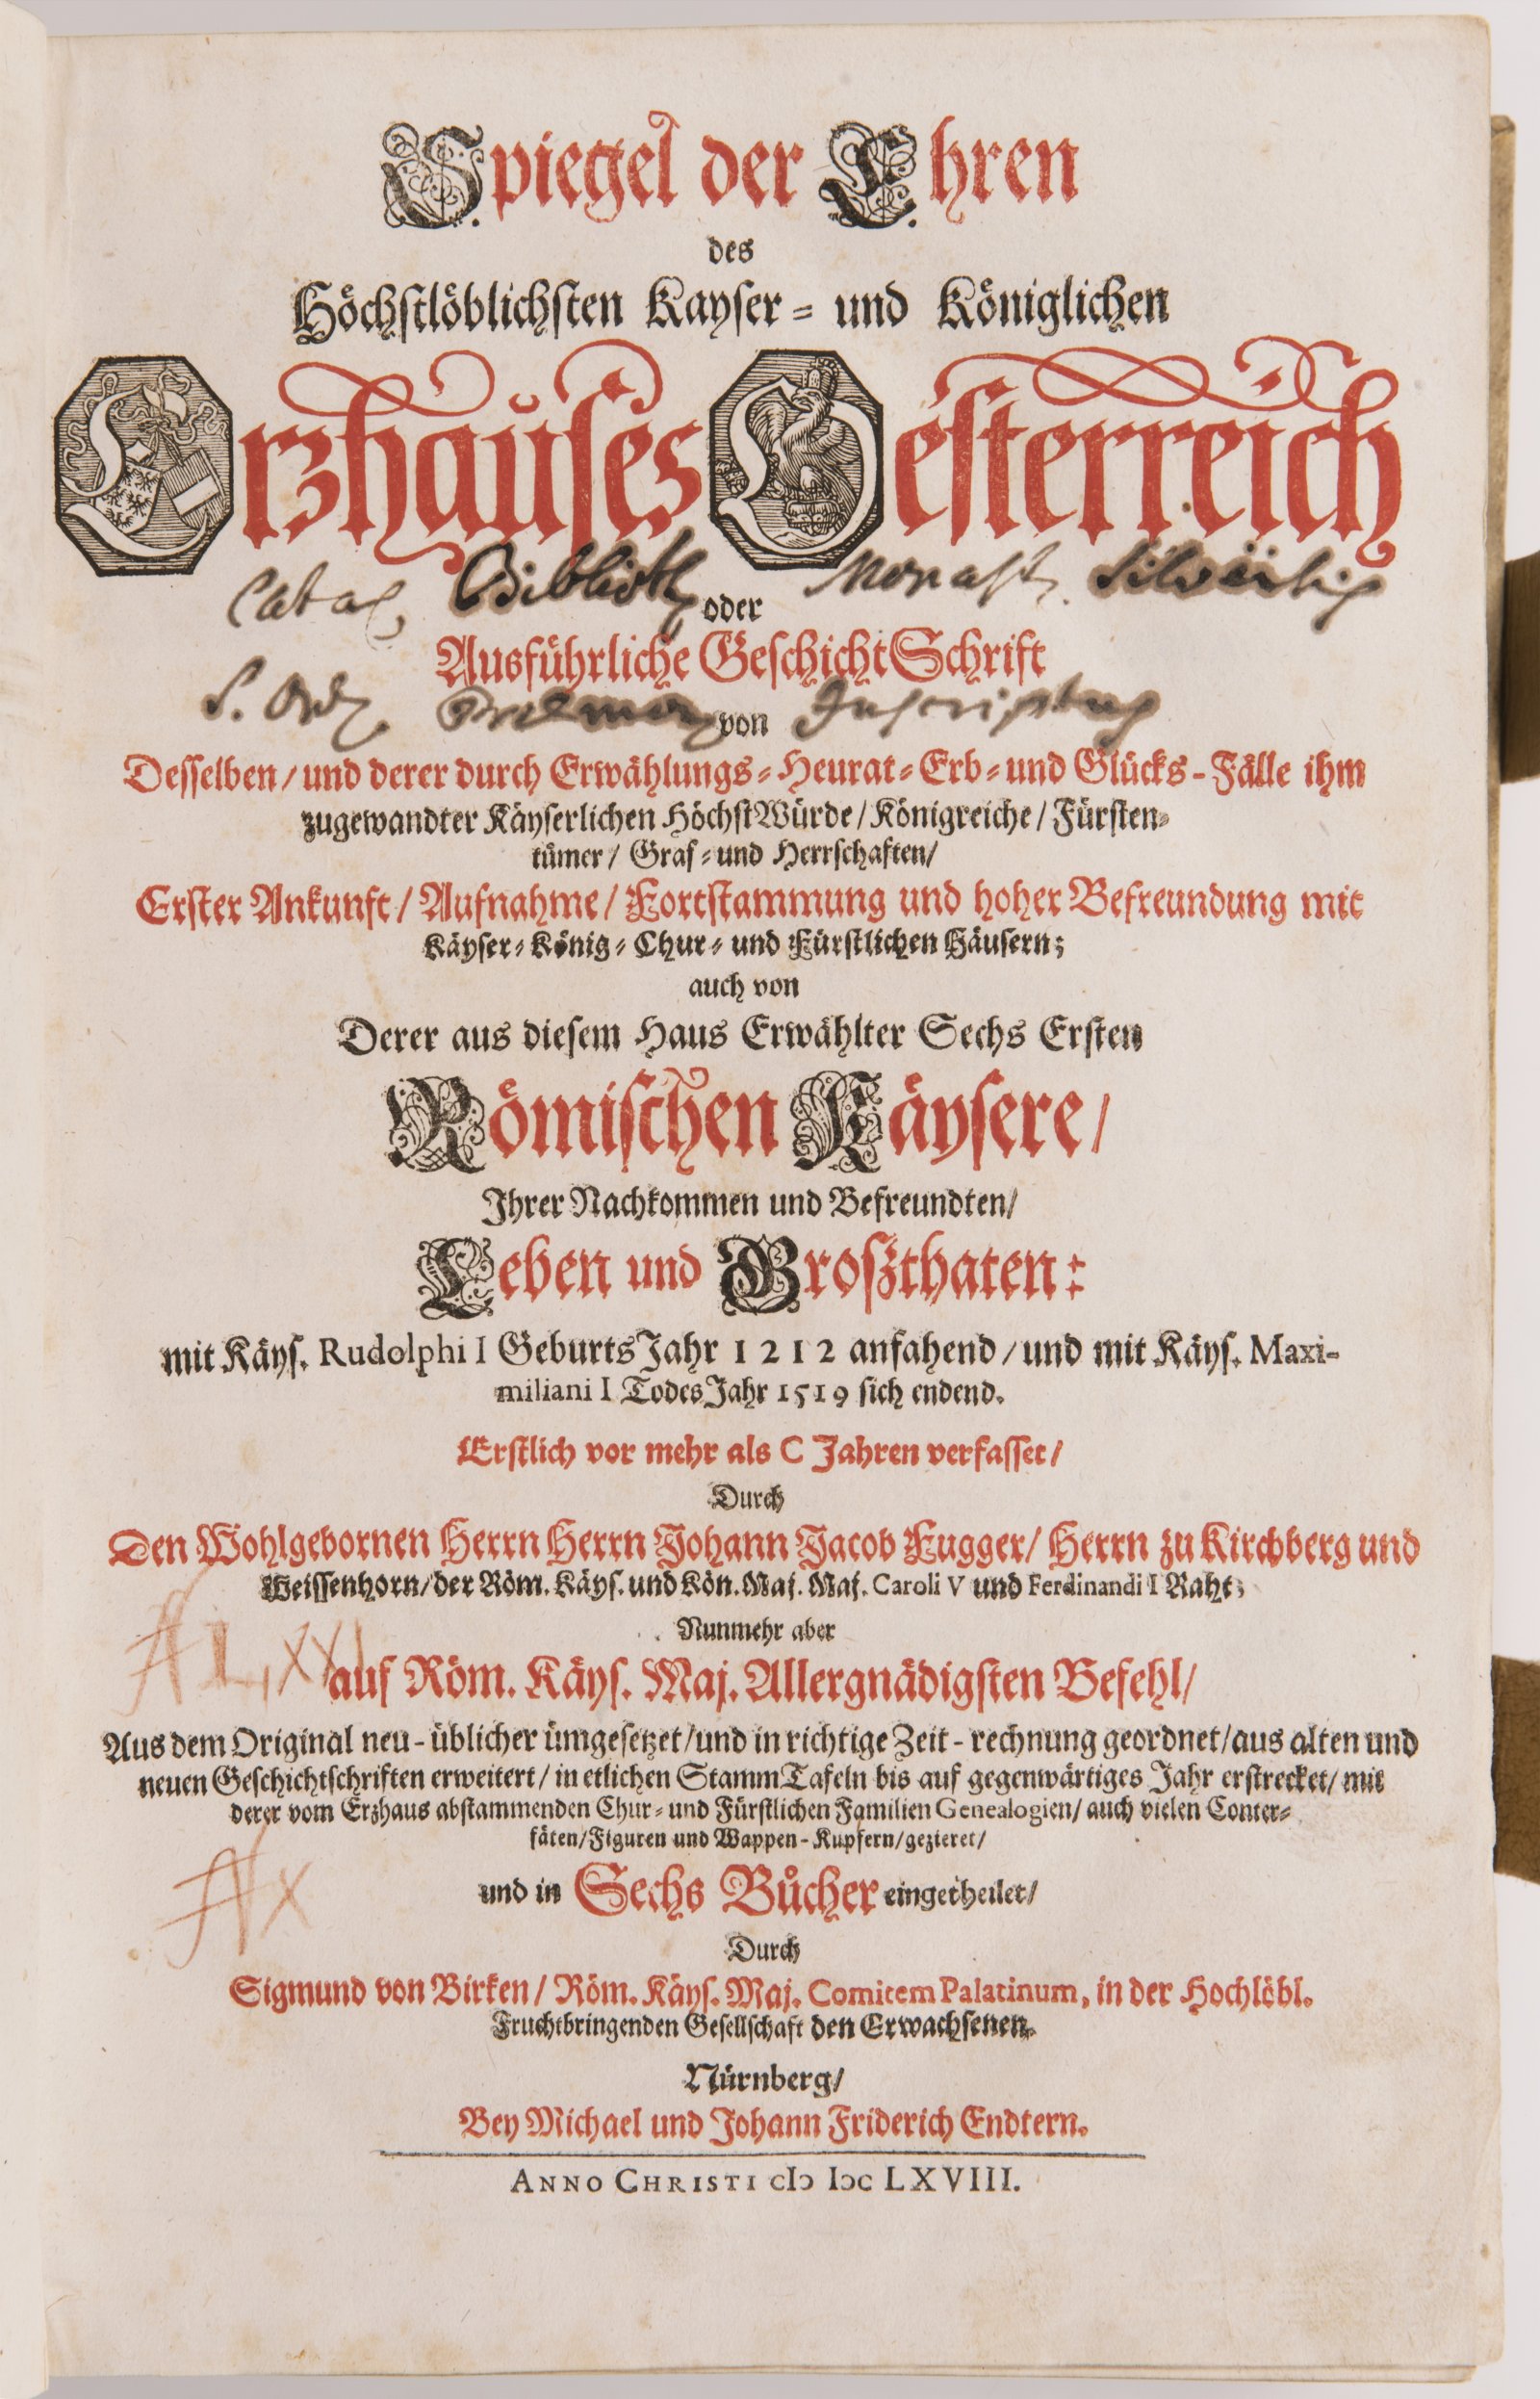 Spiegel der Ehren
des
Höchstlöblichsten Kayser- und Königlichen
Erzhauses Oesterreich
Catal. Biblioth. Monast.
oder
Ausführliche GeschichtSchrift
S. Ord.
von
Desselben/ und derer durch Erwählungs- Heurat- Erb- und Glücks-Fälle ihm
zugewandter Käyserlichen HöchstWürde/ Königreiche/ Fürsten-
tümer/ Graf- und Herrschaften/
Erster Ankunft/ Aufnahme/ Fortstammung und hoher Befreundung mit
Käyser- König- Chur- und Fürstlichen Häusern;
auch von
Derer aus diesem Haus Erwählter Sechs Ersten
Römischen Käysere/
Ihrer Nachkommen und Befreundten/
Leben und Großthaten:
mit Käys. Rudolphi I GeburtsJahr 1212 anfahend/ und mit Käys. Maxi-
miliani I TodesJahr 1519 sich endend.
Erstlich vor mehr als C Jahren verfasset/
Durch
Den Wohlgebornen Herrn Herrn Johann Jacob Fugger/ Herrn zu Kirchberg und
Weissenhorn/ der Röm. Käys. und Kön. Maj. Maj. Caroli V und Ferdinandi I Raht;
Nunmehr aber
auf Röm. Käys. Maj. Allergnädigsten Befehl/
Aus dem Original neu-üblicher ümgesetzet/ und in richtige Zeit-rechnung geordnet/ aus alten und
neuen Geschichtschriften erweitert/ in etlichen StammTafeln bis auf gegenwärtiges Jahr erstrecket/ mit
derer vom Erzhaus abstammenden Chur- und Fürstlichen Familien Genealogien/ auch vielen Conter-
fäten/ Figuren und Wappen-Kupfern/ gezieret/
und in Sechs Bücher eingetheilet/
Durch
Sigmund von Birken/ Röm. Käys. Maj. Comitem Palatinum, in der Hochlöbl.
Fruchtbringenden Gesellschaft den Erwachsenen.
Nürnberg/
Bey Michael und Johann Friderich Endtern.
ANNO CHRISTI cIɔ Iɔc LXVIII.